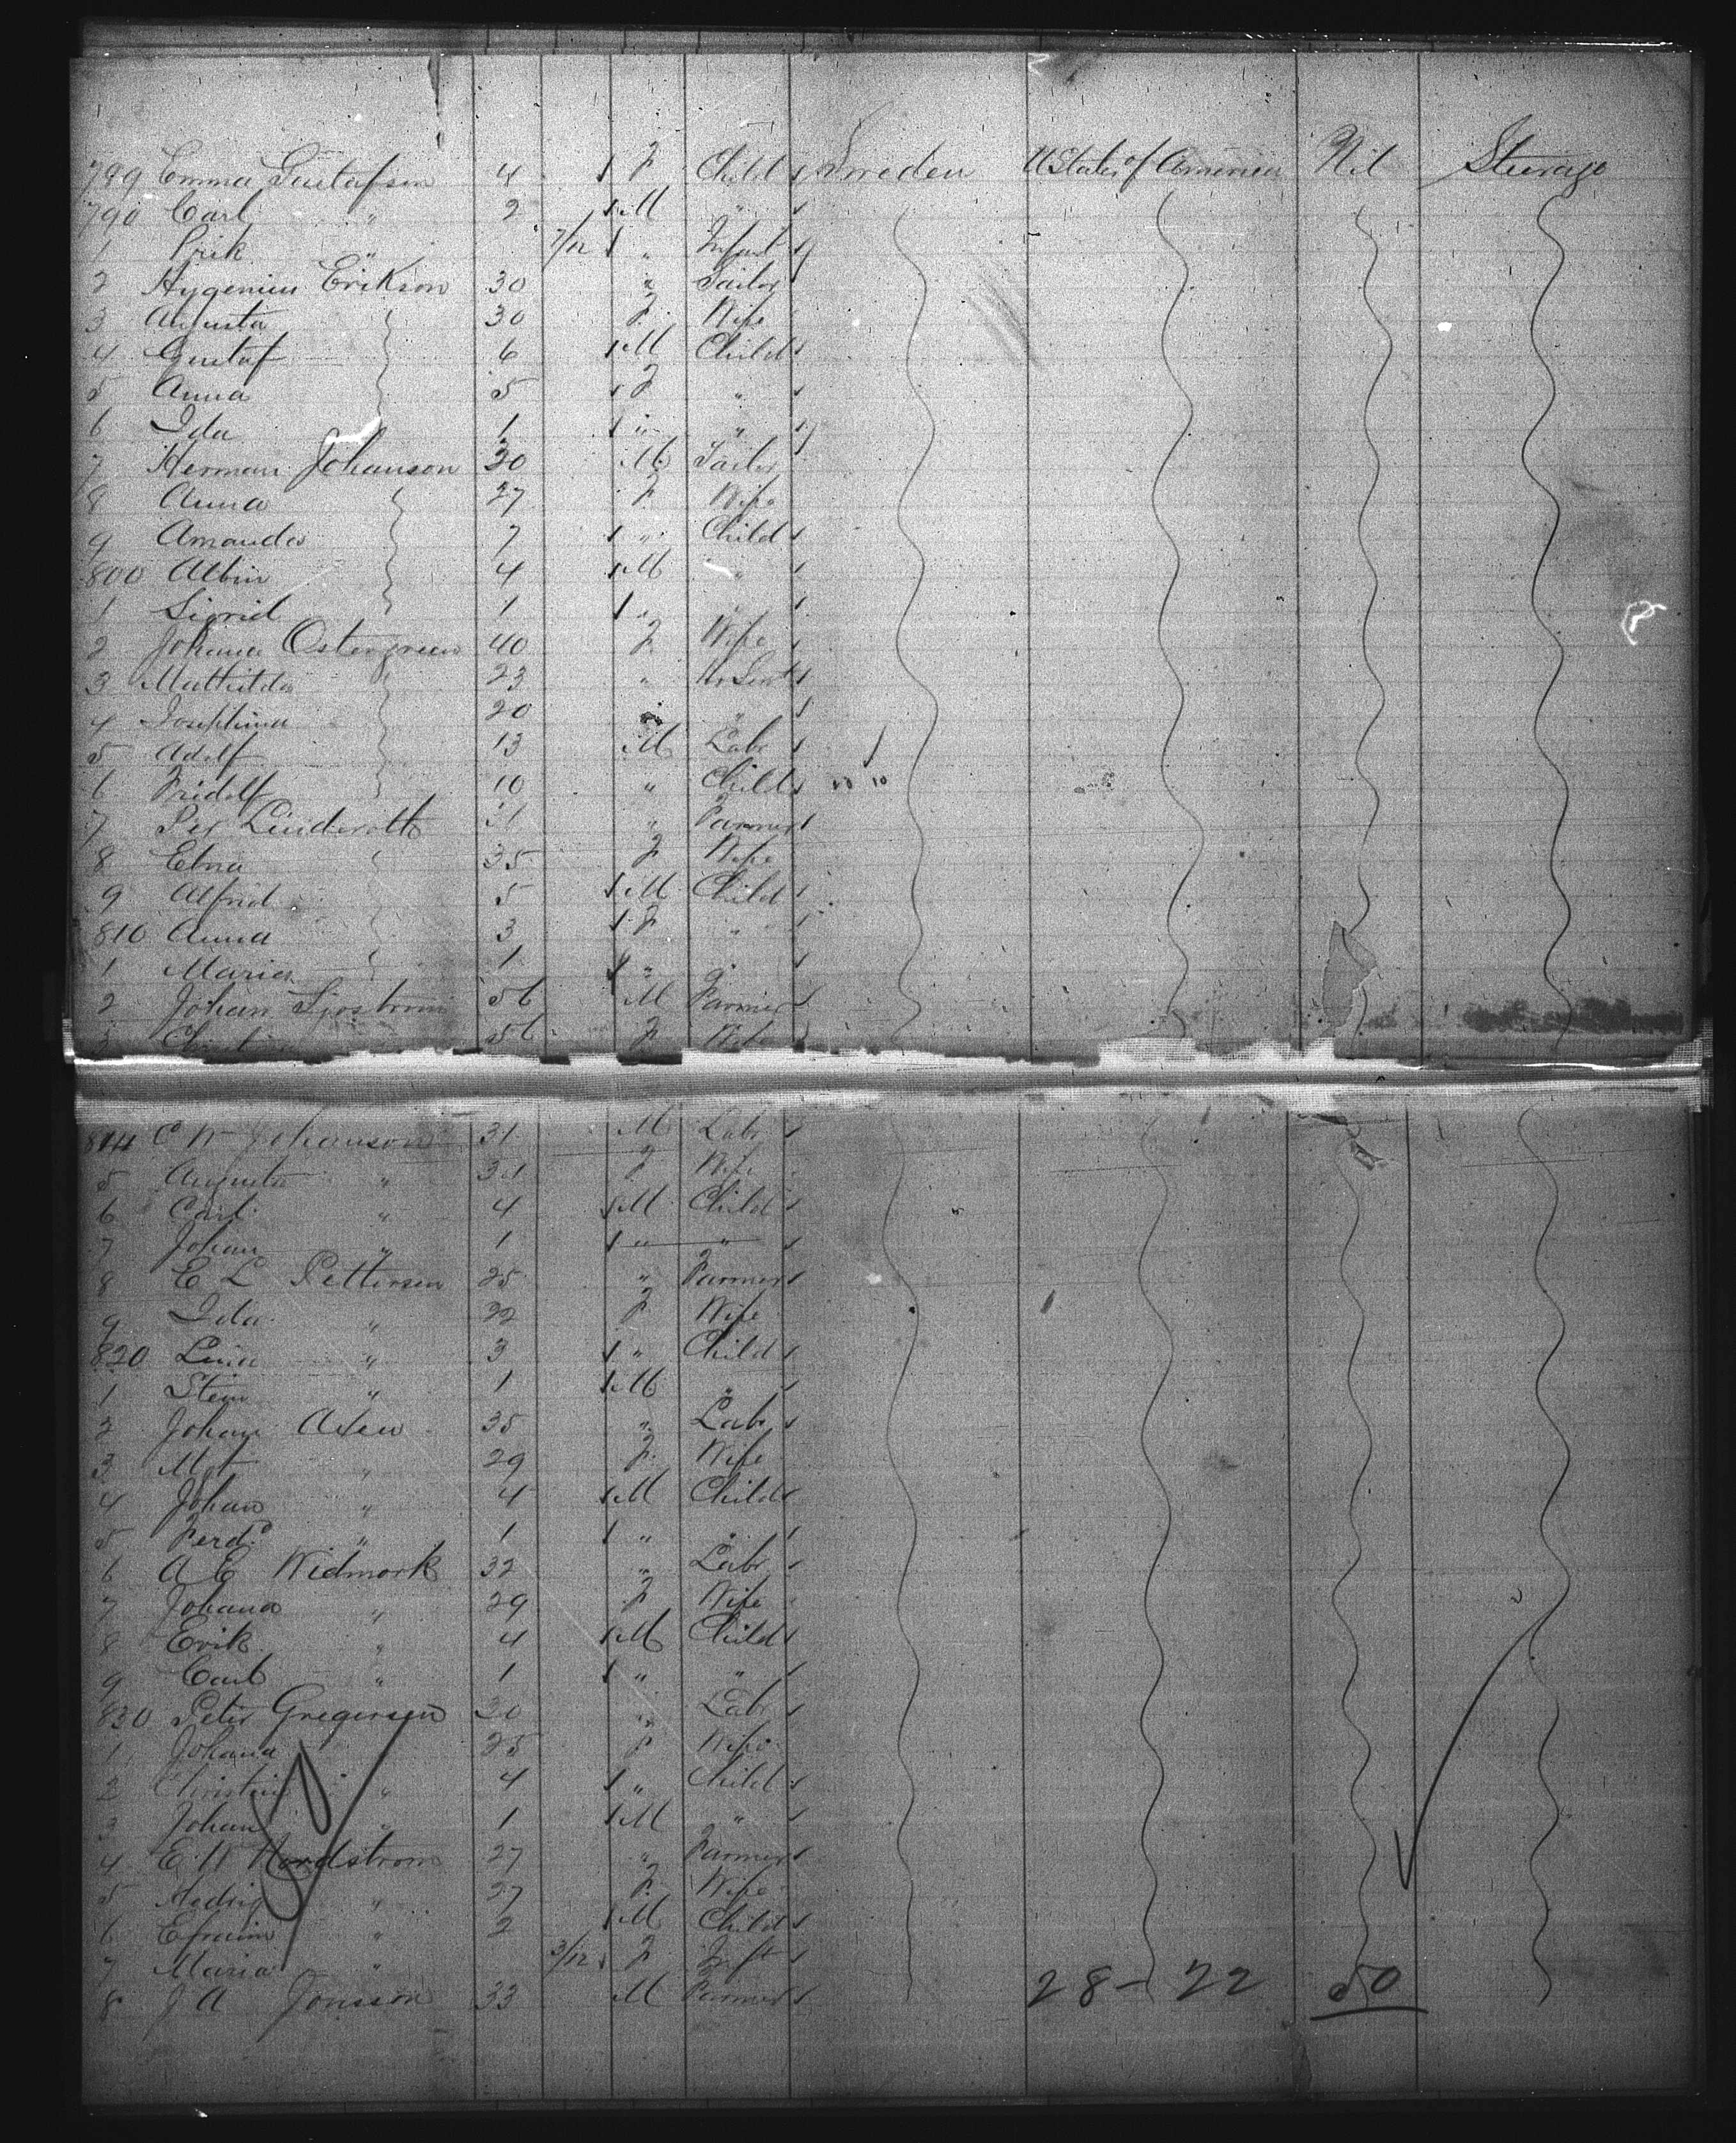 789 Emma Gustafson 4 F Child Sweden U States of America Nil Steerage
790 Carl " 2 M "
1 Erik " 7/12 " Infant
2 Hygenius Erikson 30 " Tailor
3 Augusta 30 F Wife
4 Gustaf 6 M Child
5 Anna 5 F "
6 Ida 1 " "
7 Herman Johanson 30 M Tailor
8 Anna 27 F Wife
9 Amanda 7 " Child
800 Albin 4 M "
1 Sigrid 1 " "
2 Johana Ostergreen 40 F Wife
3 Mathilda 23 "
4 Josephina 20 " "
5 Adolf 13 M Labr
6 Fridolf 10 " Child
7 Per Linderoth 31 " Farmer
8 Elna 35 F Wife
9 Alfrid 5 M Child
810 Anna 3 F "
1 Maria 1 " "
2 Johan Sjostrom 56 M Farmer
3 56 F Wife
814 C W Johanson 31 M Labr
5 Augusta " F Wife
6 Carl " 4 M Child
7 Johan " 1 " "
8 E L Petterson 25 " Farmer
9 Ida " 22 F Wife
820 " 3 " Child
1 " 1 M "
2 Johan 35 " Labr
3 " 29 F Wife
4 Johan " 4 M Child
5 Ferd " 1 " "
6 A E Widmark 32 " Labr
7 Johana " 29 F Wife
8 Erik " 4 M Child
9 Carl " 1 " "
830 Peter Gregerson 30 " Labr
1 Johana 25 F Wife
2 " 4 " Child
3 Johan " 1 M "
4 E W Nordstrom 27 " Farmer
5 Hedvig " 27 F Wife
6 Efraim " 2 M Child
7 Maria " 3/12 F Inft
8 J A Jonsson 33 M Farmer 28 - 22 50